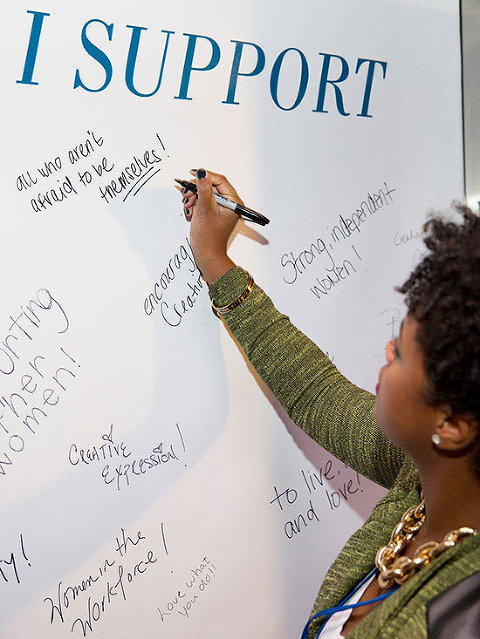 I SUPPORT
all who aren't
afraid to be
themselves!
Strong, independent
women!
other
women!
CREATIVE
EXPRESSION!
to live,
and love!
Women in the
Workforce!
Love what
you do!!